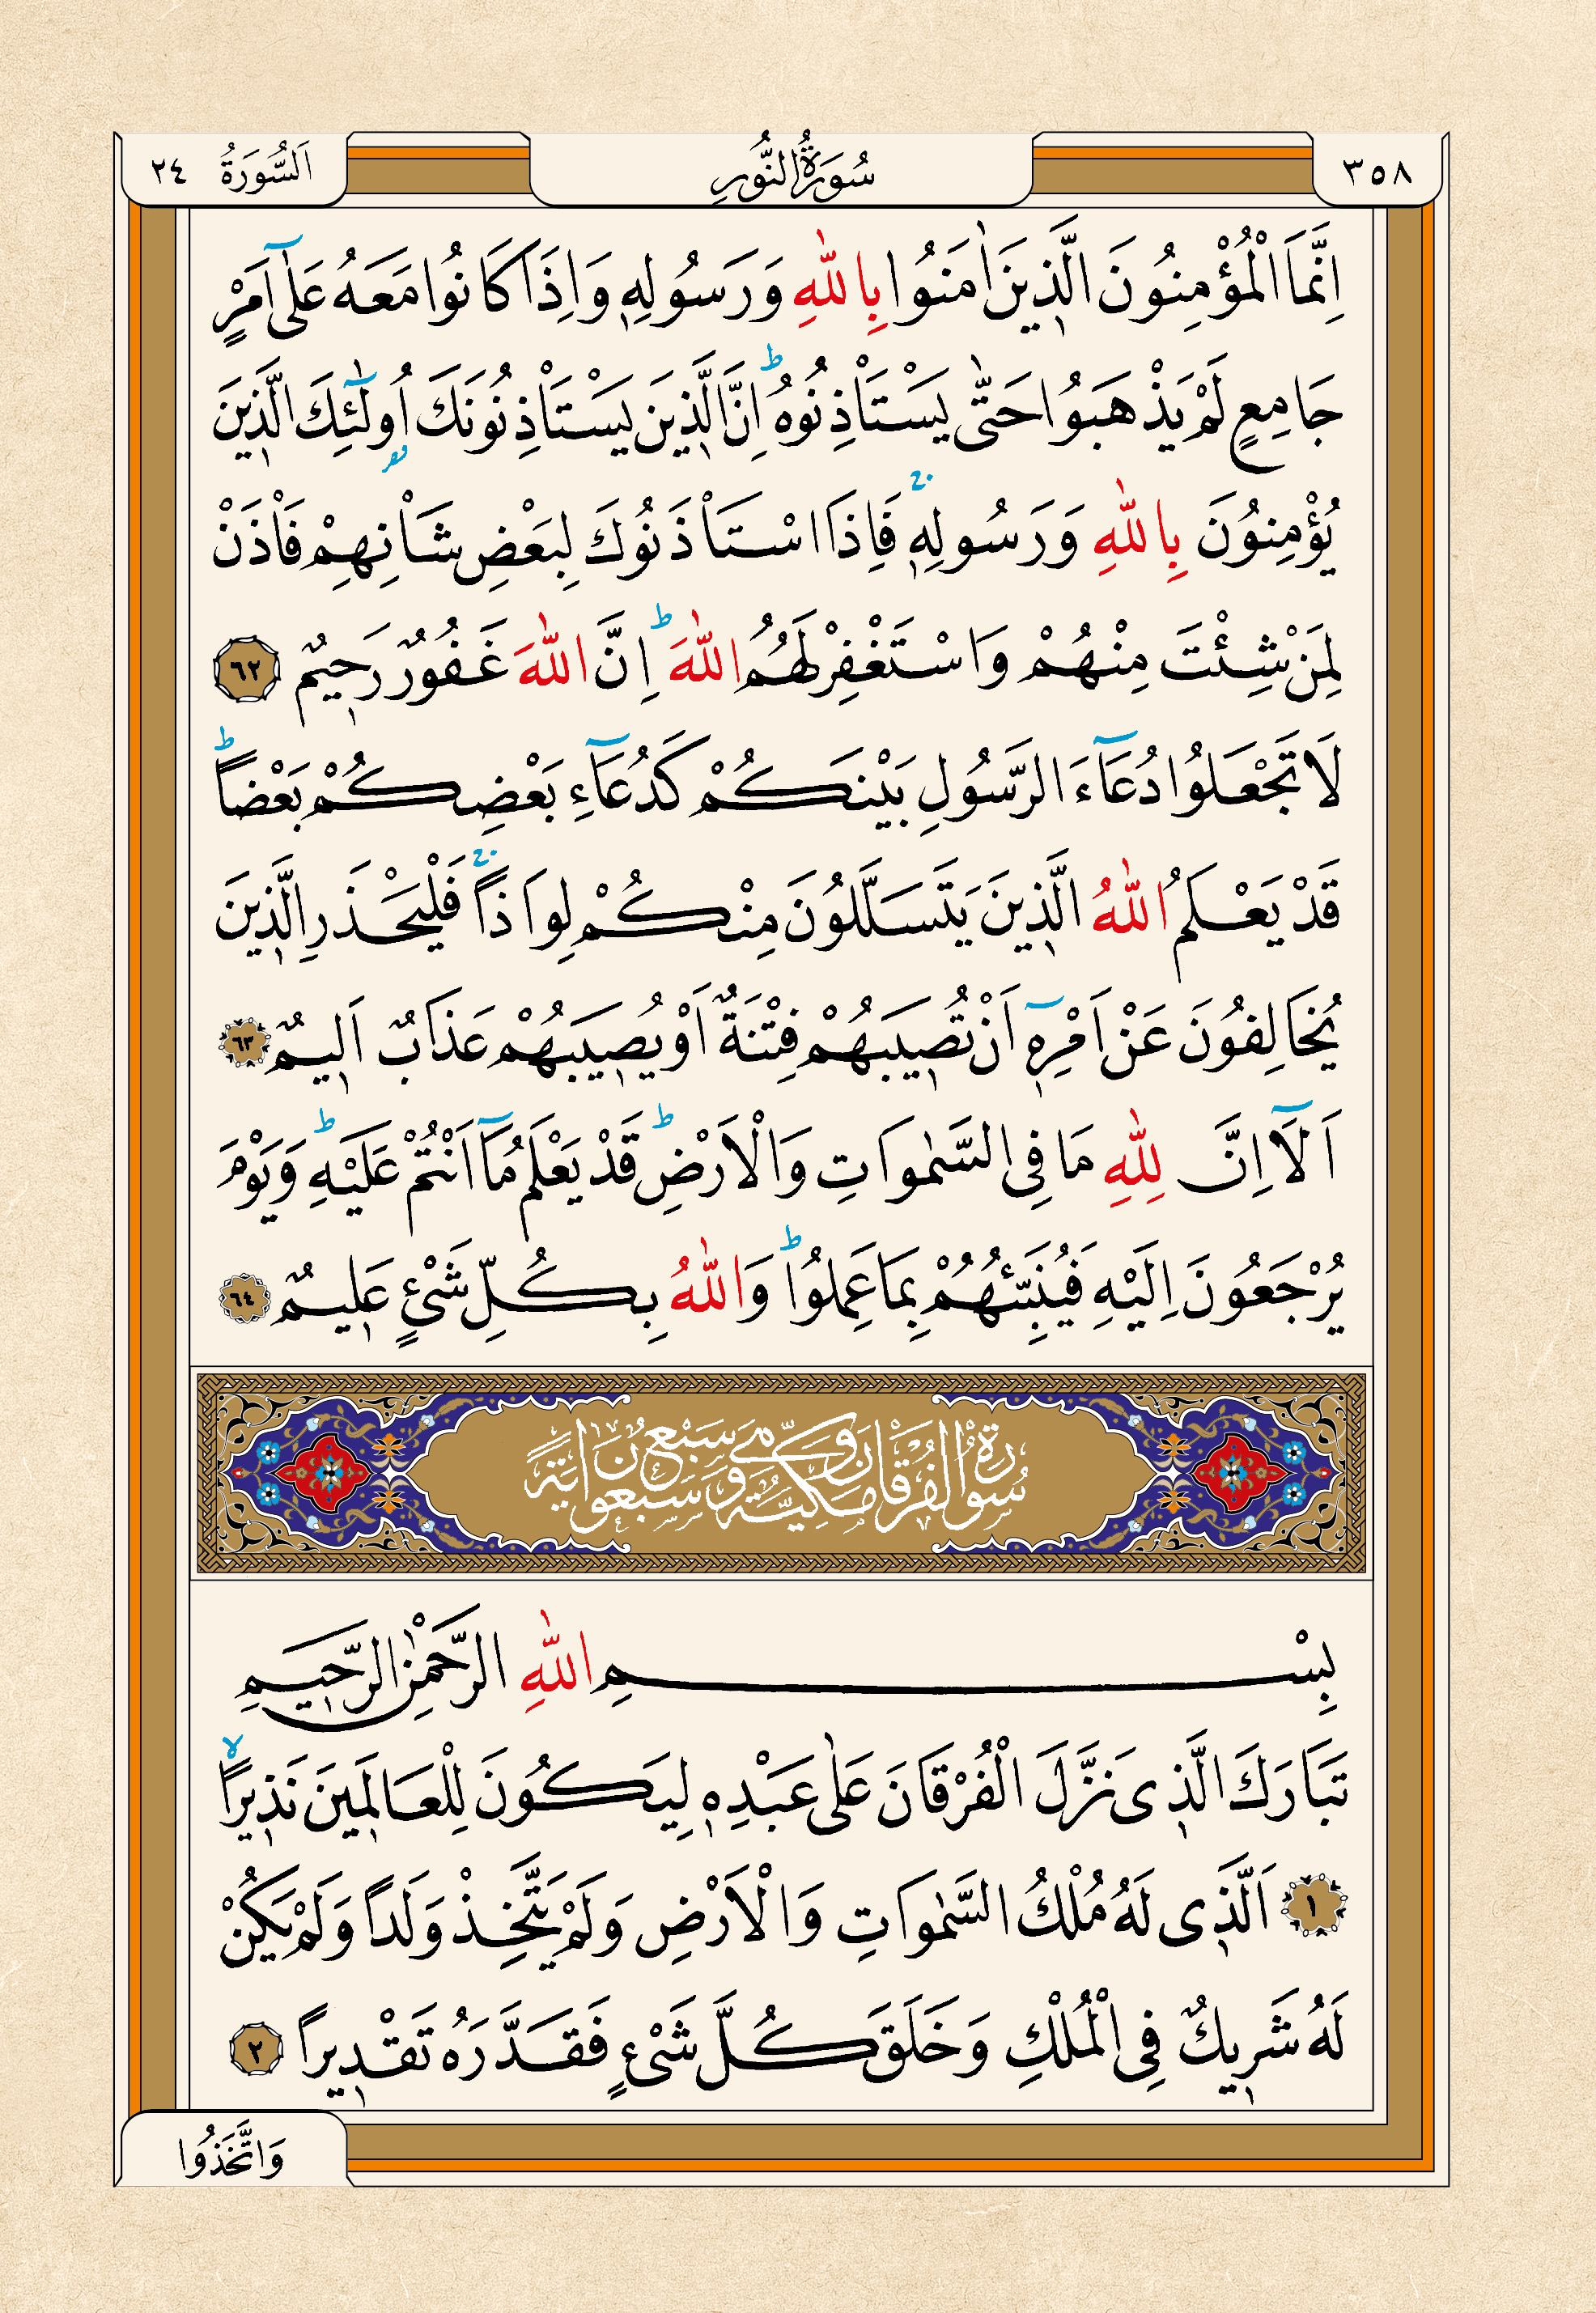 ٣٥٨ سُورَةُ النُّورِ اَلسُّورَةُ ٢٤
اِنَّمَا الْمُؤْمِنُونَ الَّذٖينَ اٰمَنُوا بِاللّٰهِ وَرَسُولِهٖ وَاِذَا كَانُوا مَعَهُ عَلٰٓى اَمْرٍ
جَامِعٍ لَمْ يَذْهَبُوا حَتّٰى يَسْتَاْذِنُوهُ ط اِنَّ الَّذٖينَ يَسْتَاْذِنُونَكَ اُولٰٓئِكَ الَّذٖينَ
يُؤْمِنُونَ بِاللّٰهِ وَرَسُولِهٖ ج فَاِذَا اسْتَاْذَنُوكَ لِبَعْضِ شَاْنِهِمْ فَاْذَنْ
لِمَنْ شِئْتَ مِنْهُمْ وَاسْتَغْفِرْ لَهُمُ اللّٰهَ ط اِنَّ اللّٰهَ غَفُورٌ رَحٖيمٌ ٦٢
لَا تَجْعَلُوا دُعَٓاءَ الرَّسُولِ بَيْنَكُمْ كَدُعَٓاءِ بَعْضِكُمْ بَعْضًا ط
قَدْ يَعْلَمُ اللّٰهُ الَّذٖينَ يَتَسَلَّلُونَ مِنْكُمْ لِوَاذًا ج فَلْيَحْذَرِ الَّذٖينَ
يُخَالِفُونَ عَنْ اَمْرِهٖٓ اَنْ تُصٖيبَهُمْ فِتْنَةٌ اَوْ يُصٖيبَهُمْ عَذَابٌ اَلٖيمٌ ٦٣
اَلَٓا اِنَّ لِلّٰهِ مَا فِى السَّمٰوَاتِ وَالْاَرْضِ ط قَدْ يَعْلَمُ مَٓا اَنْتُمْ عَلَيْهِ ط وَيَوْمَ
يُرْجَعُونَ اِلَيْهِ فَيُنَبِّئُهُمْ بِمَا عَمِلُوا ط وَاللّٰهُ بِكُلِّ شَىْءٍ عَلٖيمٌ ٦٤
سُورَةُ الْفُرْقَانِ مَكِّيَّةٌ وَهِيَ سَبْعٌ وَسَبْعُونَ اٰيَةً
بِسْمِ اللّٰهِ الرَّحْمٰنِ الرَّحٖيمِ
تَبَارَكَ الَّذٖى نَزَّلَ الْفُرْقَانَ عَلٰى عَبْدِهٖ لِيَكُونَ لِلْعَالَمٖينَ نَذٖيرًا لا
١ اَلَّذٖى لَهُ مُلْكُ السَّمٰوَاتِ وَالْاَرْضِ وَلَمْ يَتَّخِذْ وَلَدًا وَلَمْ يَكُنْ
لَهُ شَرٖيكٌ فِى الْمُلْكِ وَخَلَقَ كُلَّ شَىْءٍ فَقَدَّرَهُ تَقْدٖيرًا ٢
وَاتَّخَذُوا